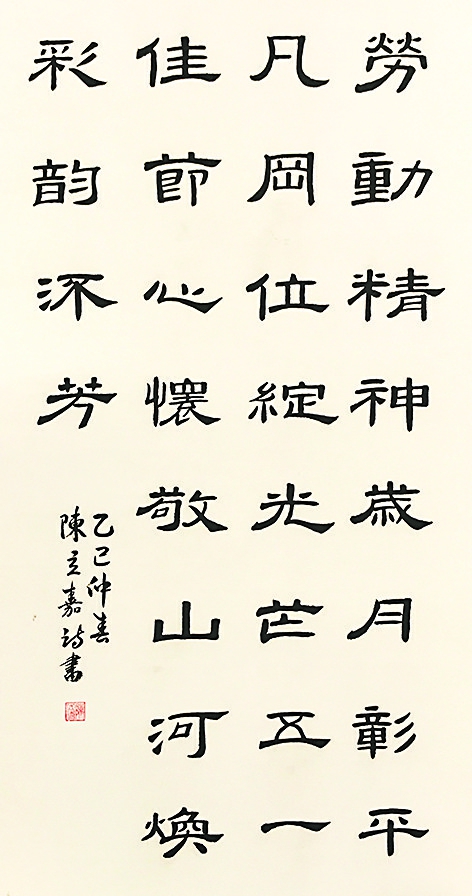 勞動精神歲月彰平
凡岡位綻光芒五一
佳節心懷敬山河煥
彩韵流芳
乙巳仲春
陳立嘉詩書